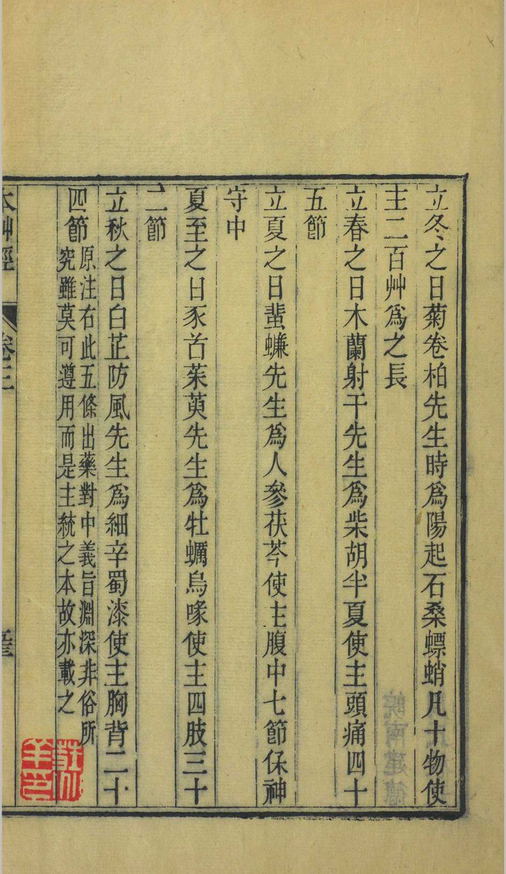 立冬之日菊卷柏先生時爲陽起石桑螵蛸凡十物使
主二百艸爲之長
立春之日木蘭射干先生爲柴胡半夏使主頭痛四十
五節
立夏之日蜚蠊先生爲人參茯苓使主腹中七節保神
守中
夏至之日豕首茱萸先生爲牡蠣烏喙使主四肢三十
二節
立秋之日白芷防風先生爲細辛蜀漆使主胸背二十
四節
原注右此五條出藥對中義旨淵深非俗所
究雖莫可遵用而是主統之本故亦載之
本艸經 卷三